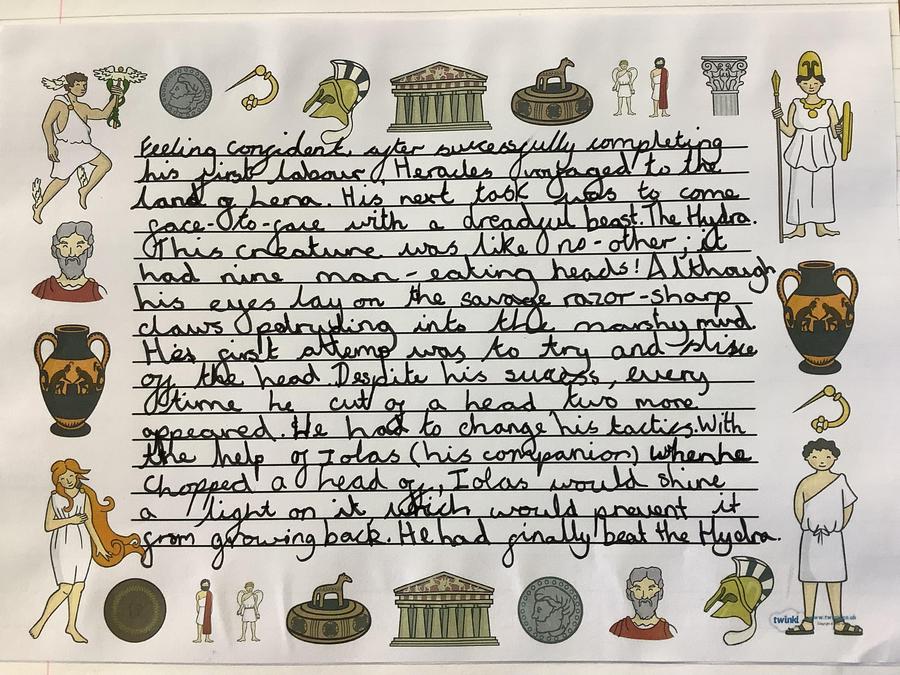 Feeling confident after sucessfully completing
his first labour, Heracles voyaged to the
land of Lena. His next task was to come
face-to-face with a dreadful beast. The Hydra.
This creature was like no-other; it
had nine man-eating heads! Although
his eyes lay on the savage razor-sharp
claws potryding into the marshy mud.
His first attemp was to try and slise
off the head. Despite his success, every
time he cut of a head two more
appeared. He had to change his tactics. With
the help of Iolas (his companion) when he
chopped a head off, Iolas would shine
a light on it which would prevent it
from growing back. He had finally beat the Hydra.
twinkl